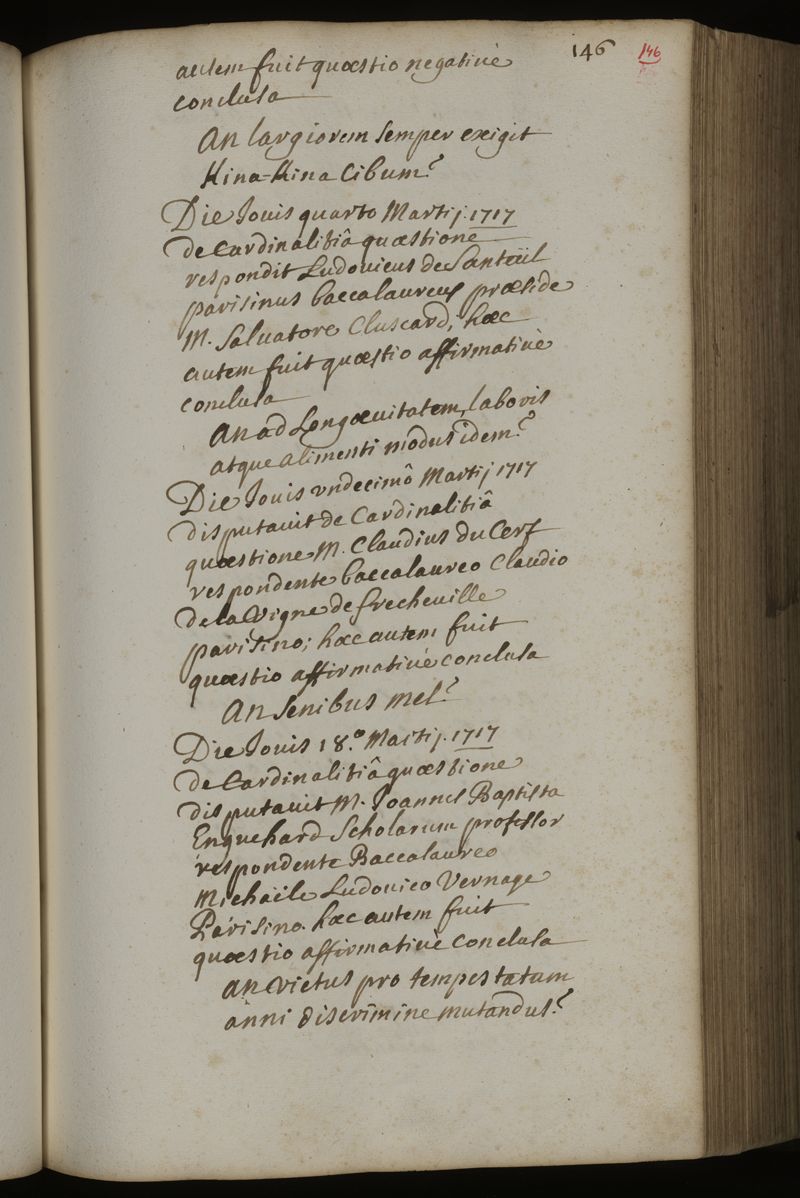 146 146
autem fuit quæstio negativè
conclusa
An largiorem semper exigit
Kina-Kina Cibum?
Die Jouis quarto Martij. 1717
de Cardinalitiâ quæstione
respondit Ludouicus de Santeüil
parisinus baccalaureus præside
M. Saluatore Cluscard; hæc
autem fuit quæstio affirmativè
conclusa
An ad Longævitatem, laboris
atque alimenti modus idem?
Die Jouis vndecimô Martij 1717
disputauit de Cardinalitiâ
quæstione M. Claudius du Cerf
respondente baccalaureo Claudio
de la Vigne de frecheuille
parisino; hæc autem fuit
quæstio affirmatiuè conclusa
An Senibus mel?
Die Jouis 18.° Martij. 1717
de Cardinalitiâ quæstione
disputauit M. Joannes Baptista
Enguehard Scholarum professor
respondente Baccalaureo
Michaële Ludouico Vernage
Parisino. hæc autem fuit
quæstio affirmatiuè conclusa
an victus pro tempestatum
anni discrimine mutandus?